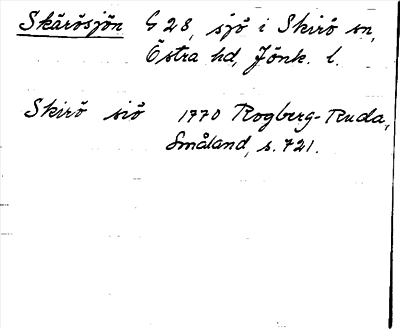 Skärösjön G 28, sjö i Skirö sn,
Östra hd, Jönk. l.
Skirö siö 1770 Rogberg-Ruda,
Småland, s. 721.